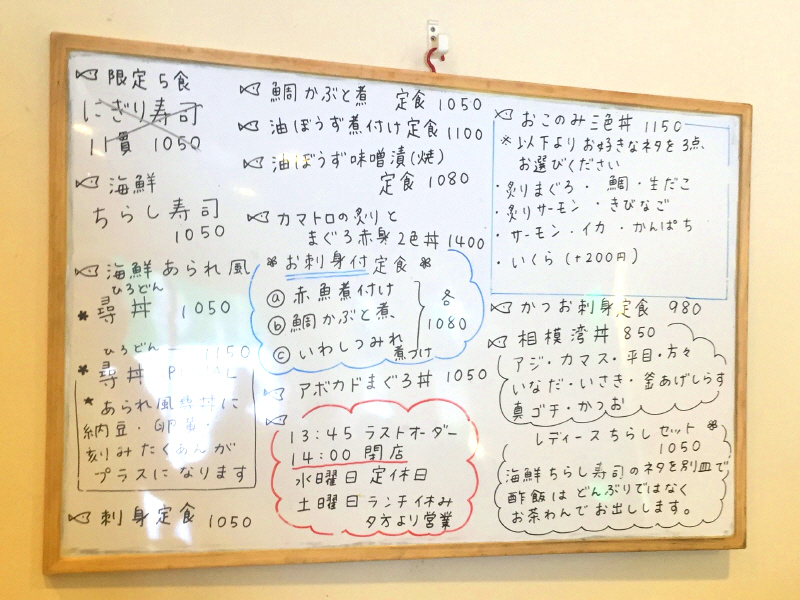 限定5食
にぎり寿司
11貫 1050
海鮮
ちらし寿司
1050
海鮮あられ風
ひろどん
* 尋丼 1050
ひろどん 1150
* 尋丼
* あられ風尋丼に
納豆・卵黄・
刻みたくあんが
プラスになります
刺身定食 1050
鯛かぶと煮 定食 1050
油ぼうず煮付け定食 1100
油ぼうず味噌漬(焼)
定食 1080
カマトロの炙りと
まぐろ赤身2色丼 1400
* お刺身付定食 *
ⓐ 赤魚煮付け
ⓑ 鯛かぶと煮
ⓒ いわしつみれ
煮つけ
各
1080
アボカドまぐろ丼 1050
13:45 ラストオーダー
14:00 閉店
水曜日 定休日
土曜日 ランチ休み
夕方より営業
おこのみ三色丼 1150
※以下よりお好きなネタを3点、
お選びください
・炙りまぐろ・鯛・生だこ
・炙りサーモン・きびなご
・サーモン・イカ・かんぱち
・いくら(+200円)
かつお刺身定食 980
相模湾丼 850
アジ・カマス・平目・方々
いなだ・いさき・釜あげしらす
真ゴチ・かつお
レディースちらしセット
1050
海鮮ちらし寿司のネタを別皿で
酢飯はどんぶりではなく
お茶わんでお出しします。